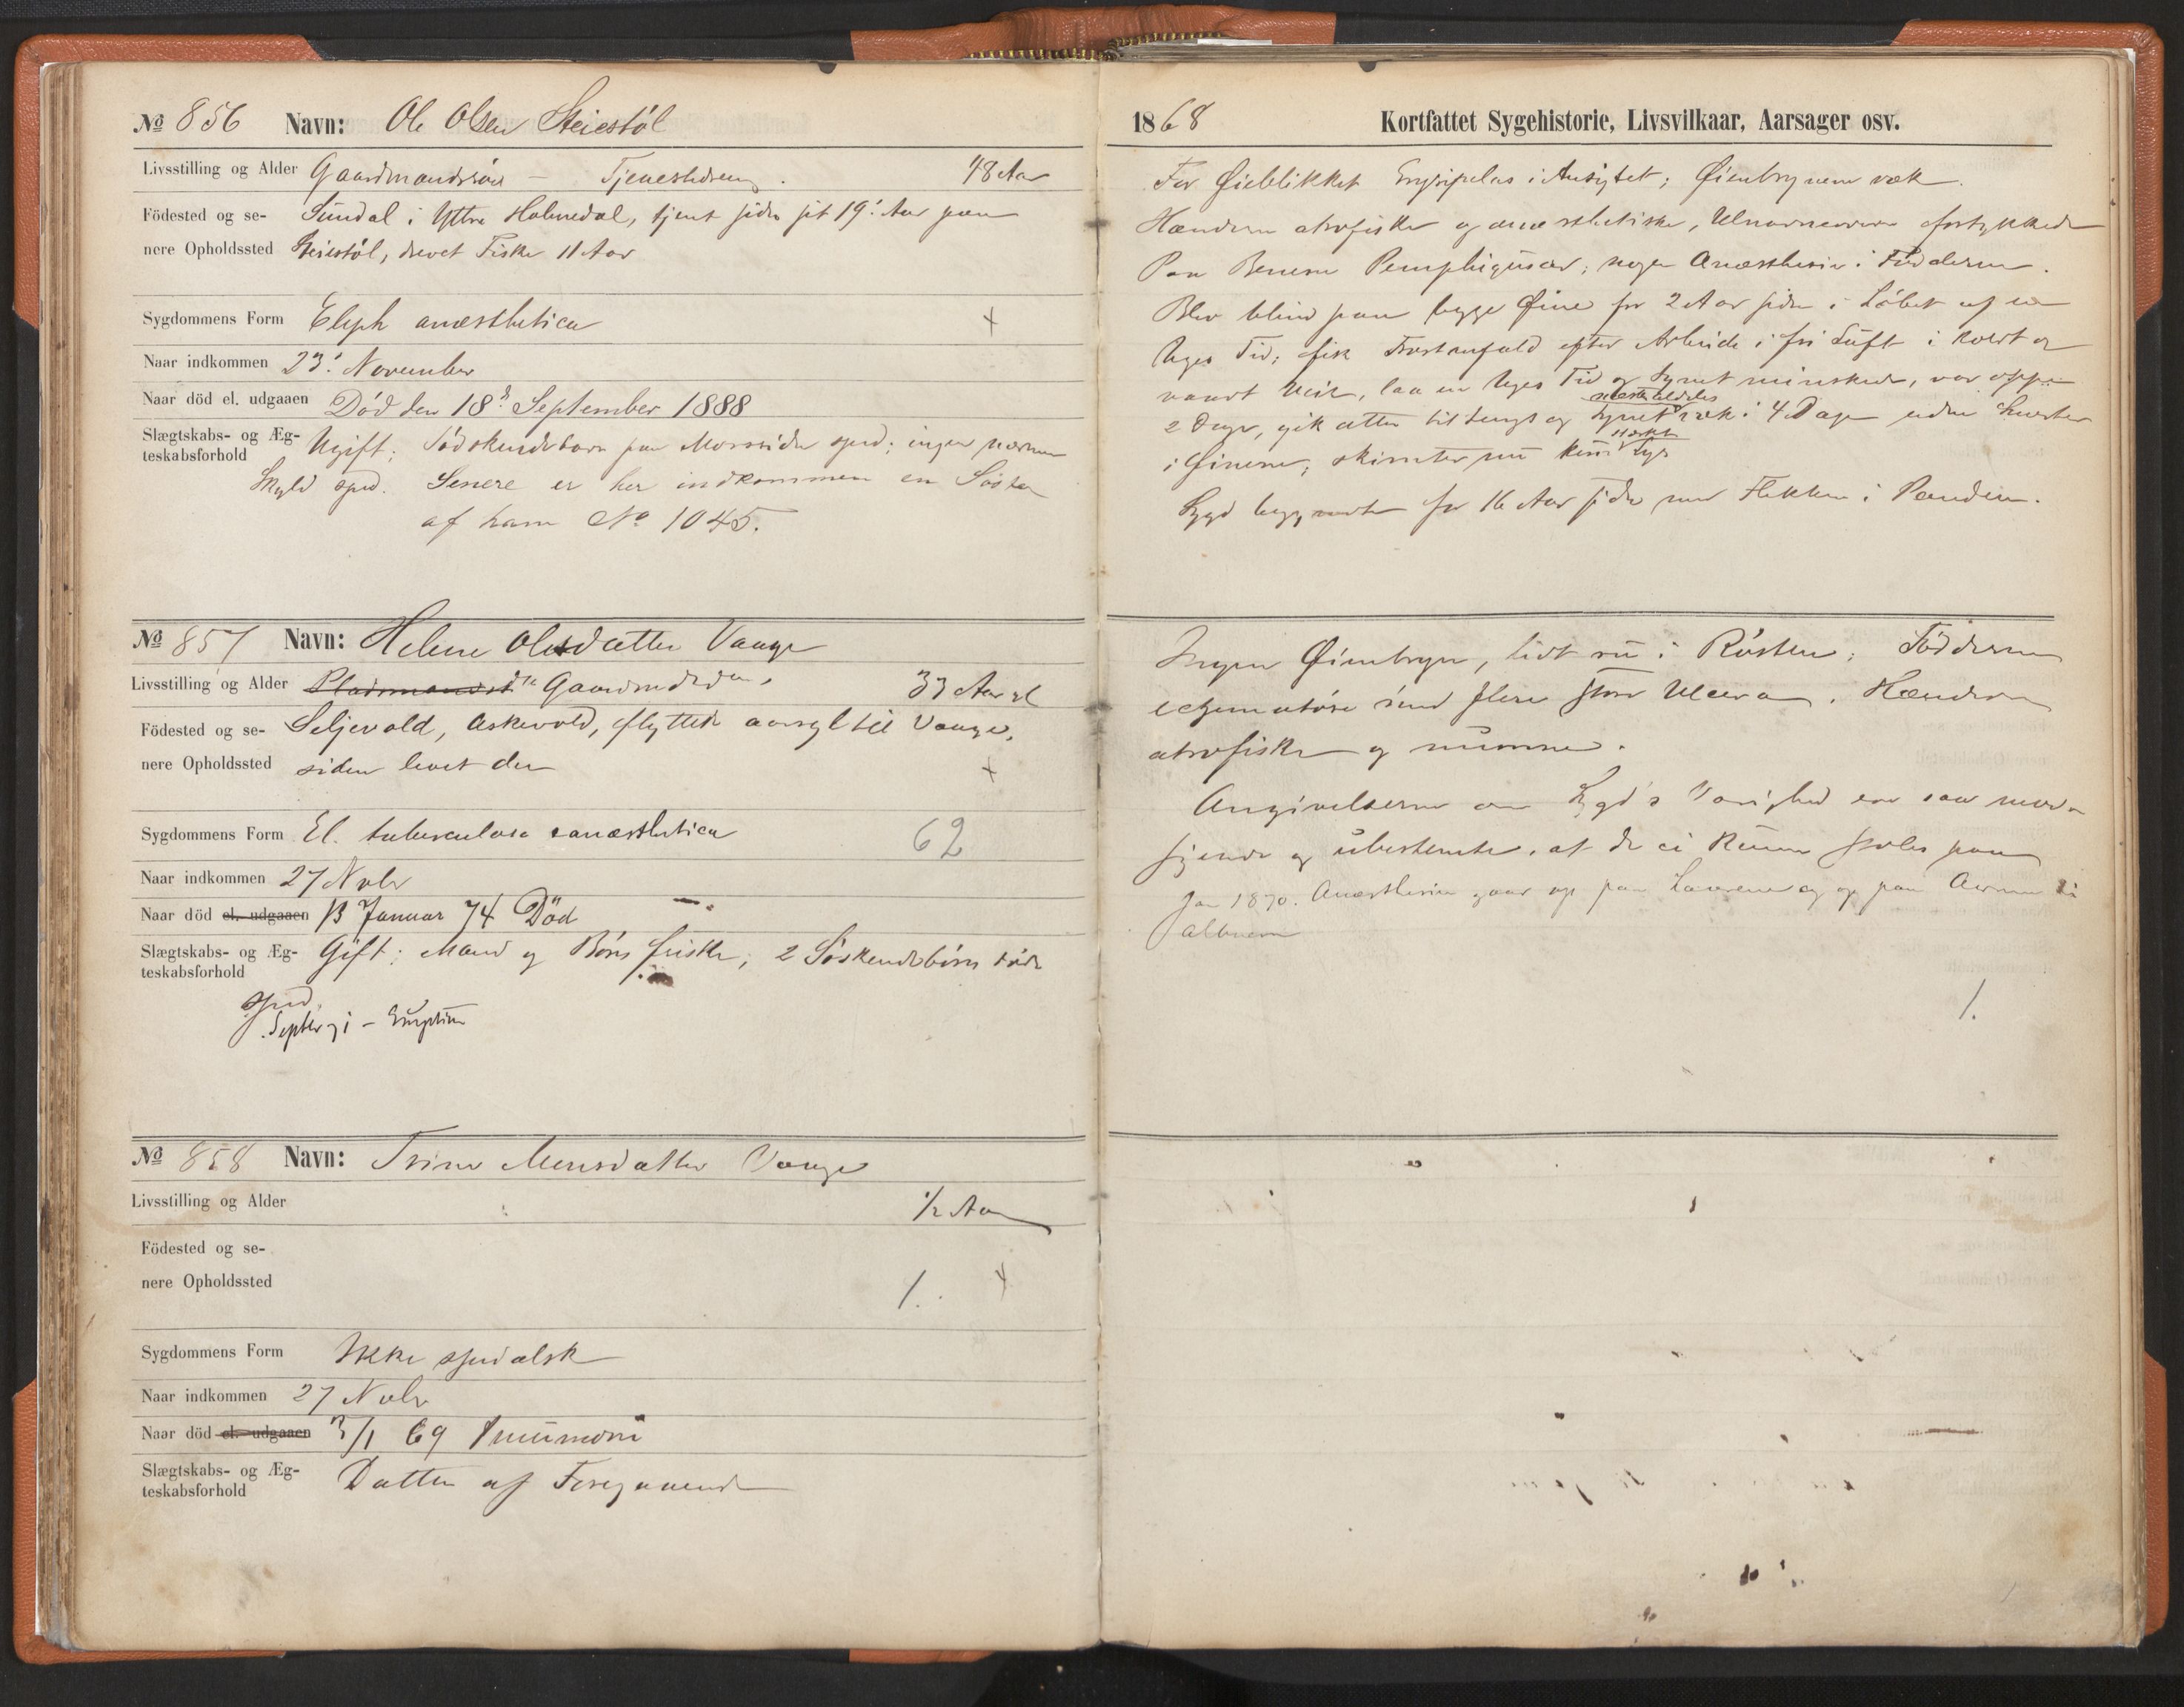 № 856 Navn: Ole Olsen Steiestöl
Livsstilling og Alder Gaardmandssön – Tjenestedreng. 48 Aar
Födested og se- Sundal i Yttre Holmedal, tjent siden sit 19! Aar paa
nere Opholdssted Steiestöl, drevet Fiske 11 Aar
Sygdommens Form Eleph anæsthetica +
Naar indkommen 23! November
Naar död el. udgaaen Död den 18d September 1888
Slægtskabs- og Æg- Ugift; Södskendebarn paa Morssiden sped; ingen nærmere
teskabsforhold
Skyld sped. Senere er her indkommen en Söster
af ham No 1045.
№ 857 Navn: Helene Olesdatter Vaage
Livsstilling og Alder Pladsmandsd Gaardmdsdtr, 33 Aar gl
Födested og se- Seljevold, Askevold, flyttede aarsgl til Vaage,
nere Opholdssted siden levet der +
Sygdommens Form El. tuberculosa anæsthetica 62
Naar indkommen 27 Novbr
Naar död el. udgaaen 13 Januar 74 Död
Slægtskabs- og Æg- Gift; Mand og Börn friske; 2 Söskendebörn döde
teskabsforhold
sped.
Septbr 71 – Eruption
№ 858 Navn: Trine Monsdatter Vaage
Livsstilling og Alder 1/2 Aar
Födested og se-
nere Opholdssted 1. +
Sygdommens Form Ikke spedalsk
Naar indkommen 27 Novbr
Naar död el. udgaaen 3/1 69 Pneumoni
Slægtskabs- og Æg- Datter af Foregaaende
teskabsforhold
1868 Kortfattet Sygehistorie, Livsvilkaar, Aarsager osv.
For Øieblikket Erysipelas i Ansigtet; Øienbrynene væk.
Hænderne atrofiske og anæsthetiske, Ulnarnerverne fortykkede
Paa Benene Pemphigusar; nogen Anæsthesie i Födderne.
Blev blind paa begge Øine for 2 Aar siden i Löbet af en
Uges Tid; fik Frostanfald efter Arbeide i fri Luft i koldt og
vaadt Veir, laa en Uges Tid og Synet minskede, var oppe
2 Dage, gik atter til Sengs og Synet næsten aldeles væk i 4 Dage uden Smerter
i Øinene; skimter nu kun stærkt Lys
Sygd begyndte for 16 Aar siden med Flekker i Panden.
Ingen Øienbryn, lidt ru i Rösten; Födderne
eczematöse med flere store Ulcera. Hænderne
atrofiske og numne.
Angivelserne om Sygd's Varighed ere saa mod-
sigende og ubestemte, at de ei kunne stoles paa
Jan 1870. Anæsthesien gaar op paa Laarene og op paa Armene til
Albuerne
1.